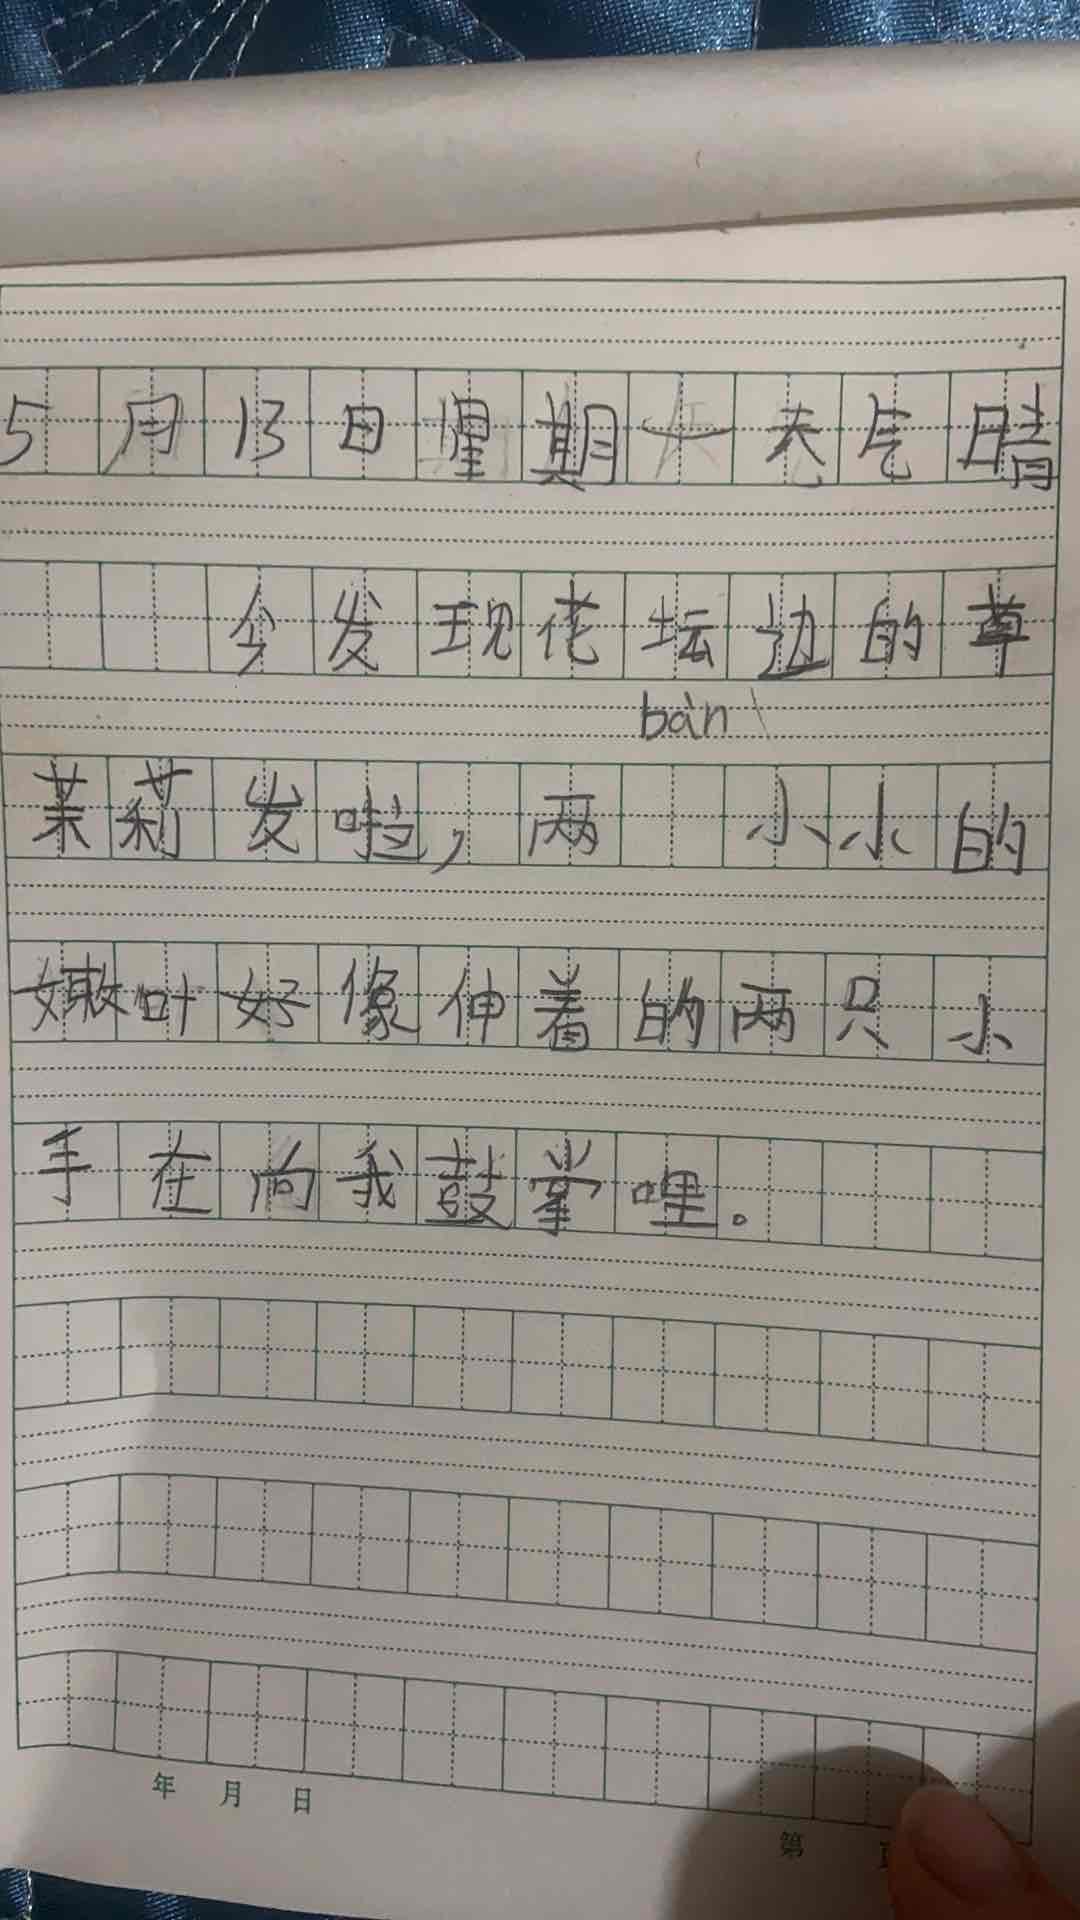 5月13日星期六天气晴
今发现花坛边的草
bàn
茉莉发啦，两 小小的
嫩叶好像伸着的两只小
手在向我鼓掌哩。
年 月 日
第